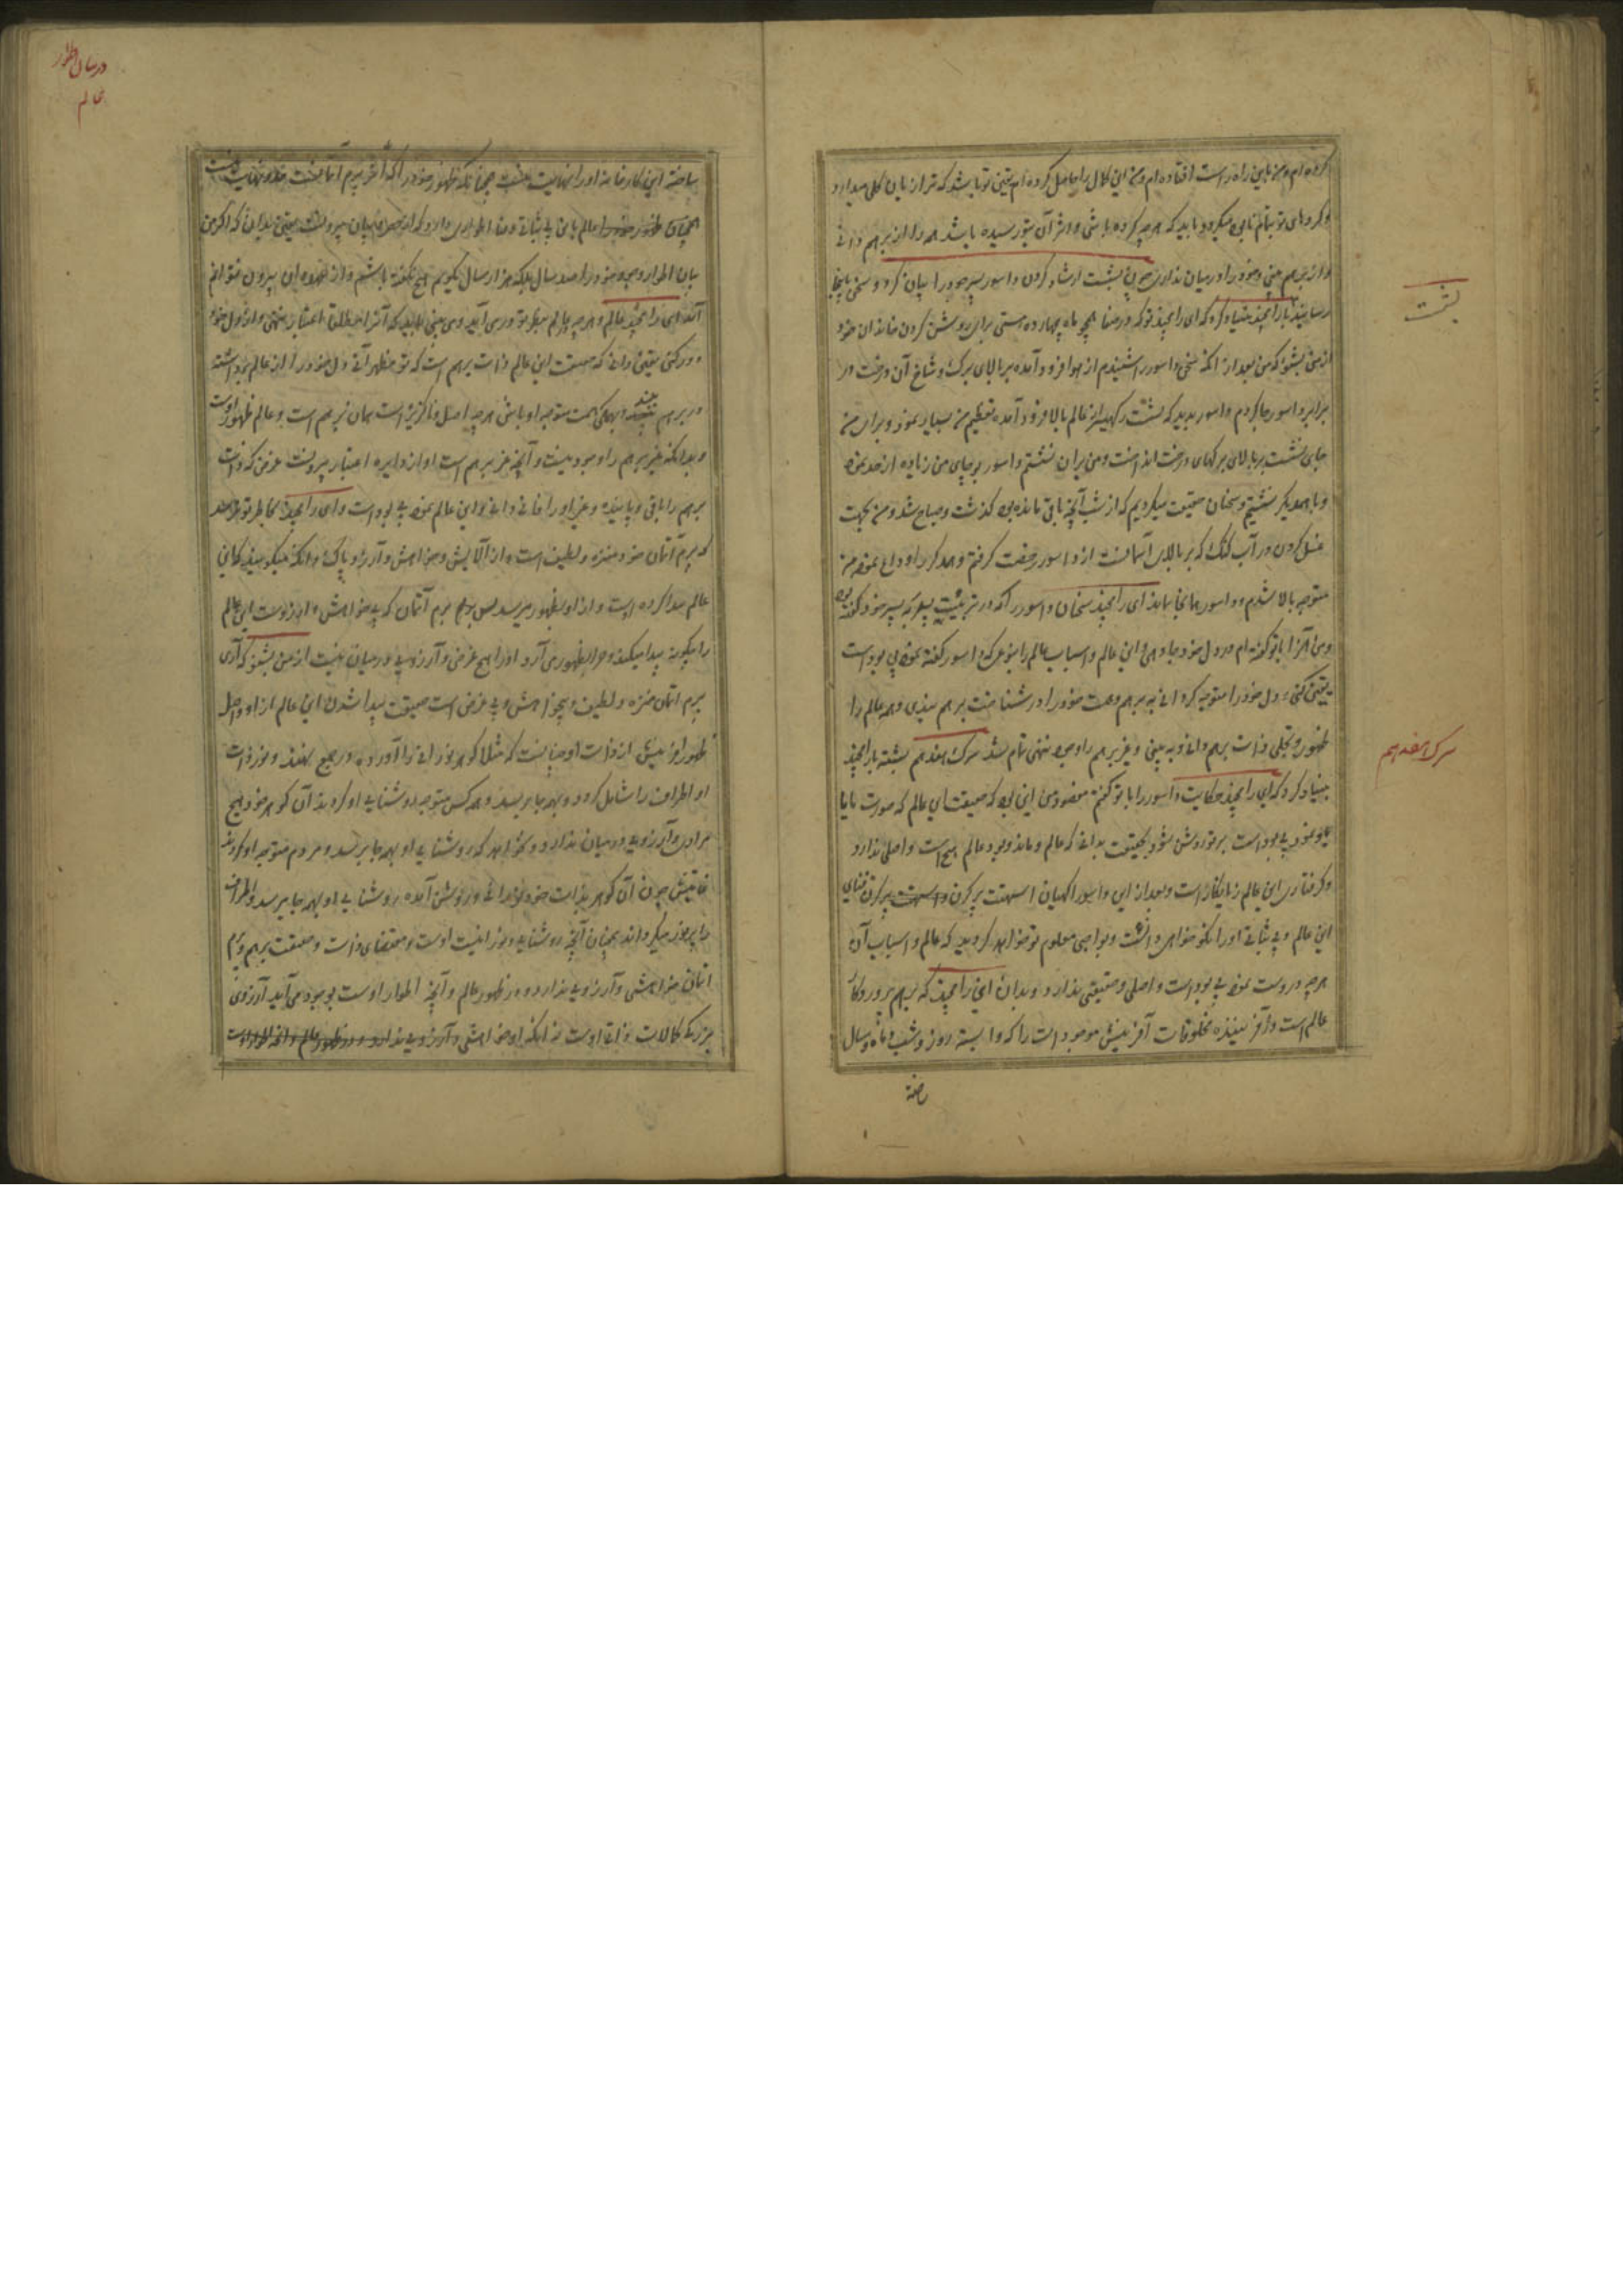 کرده ام و من باین راه راست افتاده ام و من این کمال را حاصل کرده ام یقین تو باشد که ترا از پایان کلی میدارد
و کردهای تو تمام تابی میگردد باید که هرچه کرده باشی و اثر آن بتو رسیده باشد همه را از برهم دانی
و از برهم بینی و خود را در میان نداری چون بشست ارشاد کردن داسور پسر خود را بیان کرد و سخن باینجا
رسانید با رامچند بنیاد کرد که ای رامچند تو که در صفا همچو ماه چهارده هستی برای روشن کردن خاندان خود
از من بشنو که من بعد از آنکه سخن داسور را شنیدم از هوا فرود آمده بر بالای برک و شاخ آن درخت در
برابر داسور جا کردم داسور بدید که بشست رکهیسر از عالم بالا فرود آمده تعظیم من بسیار نمود و برای من
جای نشست بر بالای برکهای درخت انداخت و من بران نشستم داسور بر جای من زیاده از حد نموده
و با همدیکر نشستیم و سخنان حقیقت میکردیم که از شب آنچه باقی مانده بود کذشت و صباح شد و من بجهت
غسل کردن در آب کنک که بر بالای آسمانست از داسور رخصت کرفتم و همدیکر را وداع نموده من
متوجه بالا شدم و داسور همانجا ماند ای رامچند سخنان داسور را که در تربیت پسر خود کفته بود
و من آنرا با تو کفته ام در دل خود جا دهی این عالم و اسباب عالم را بنوعی که داسور کفته نمود بی بود است
یقین کنی و دل خود را متوجه کردانی به برهم و همت خود را در شناخت برهم بندی و همه عالم را
ظهور و تجلی ذات برهم دانی و ببینی و غیر برهم را وجود ننهی تمام شد سرک هفدهم بشست با رامچند
بنیاد کرد که ای رامچند حکایت داسور را با تو کفتم مقصود من این بود که حقیقت این عالم که صورت مایا
یا نمود بی بود است بر تو روشن شود و بحقیقت بدانی که عالم و ماند و بود عالم هیچ است و اصلی ندارد
و کرفتاری این عالم زیانکار است و بعد از این داسور اکهیان
این عالم و بی ثباتی او را نکو خواهی دانست و بواجبی معلوم تو خواهد کردید که عالم و اسباب آن
هرچه دروست نمود بی بود است و اصلی و حقیقتی ندارد و بدان ای رامچند که برهم پروردکار
عالم است و آفریننده مخلوقات آفرینش موجودات را که وابسته روز و شب و ماه و سال
ساخته
بشست
سرک هفدهم
در بیان اطوار
عالم
ساخته این کارخانه او را نهایت نیست چنانکه ظهور خود را که آخر پرم آتماست حد و نهایت نیست
همچنان ظهور خود را عالم با این بی ثباتی و فنا اطواری دارد که از حد بیان بیرونست یقین بدان که اکر من
بیان اطوار وجود خود را صد سال بلکه هزار سال بکویم هیچ نکفته باشم و از عهده آن بیرون نتوانم
آمد ای رامچند عالم و هرچه در عالم بنظر تو در می آید و می بینی باید که آنرا مطلقا اعتبار ننهی و از دل خود
دور کنی یقین دانی که حقیقت این عالم ذات برهم است که تو مظهر آنی دل خود را از عالم برداشته
در برهم ببند و بهمکی همت متوجه او باش هرچه اصل و ناکزیز است همان برهم است و عالم ظهور اوست
و بدانکه غیر برهم را وجود نیست و آنچه غیر برهم است او از دایره اعتبار بیرونست غرض که ذات
برهم را باقی و پاینده و غیر او را فانی دانی و این عالم نمود بی بود است و ای رامچند بخاطر تو نرسد
که پرم آتمان خود منزه و لطیف است و از آلایش و خواهش و آرزو پاک و آنکه میکویند که این
عالم پیدا کرده اوست و از او بظهور میرسد پس پرم آتمان که بی خواهش و آرزوست این عالم
را چکونه پیدا میکند و چرا بظهور می آرد او را هیچ غرض و آرزویی در میان نیست از من بشنو که آری
پرم آتمان منزه و لطیف و بیخواهش و بی غرض است حقیقت پیدا شدن این عالم از او و اصل
ظهور آفرینش از ذات او چنانست که مثلا کوهر نورانی را آورده در جمع نهند و نور ذات
او اطراف را شامل کردد و بهمه جا برسد و همه کس متوجه روشنایی او کردند آن کوهر خود هیچ
مرادی و آرزویی در میان ندارد و نخواهد که روشنایی او بهمه جا برسد و مردم متوجه او کردند
غایتش چون آن کوهر بذات خود نورانی و روشن آمده روشنایی او بهمه جا برسد و اطراف
را پرنور میکرداند همچنان آنچه روشنایی و نورانیت اوست و مقتضای ذات و حقیقت برهم و پرم
آتمان خواهشی و آرزویی ندارد و در ظهور عالم و آنچه اطوار اوست بوجود می آید آرزوی
بزرک کمالات ذاتی اوست نه آنکه او خواهشی و آرزویی ندارد و در ظهور عالم و آنچه اطوار اوست